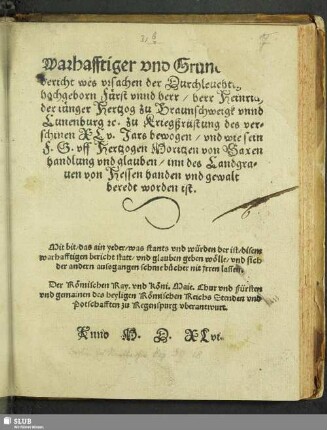 Warhafftiger vnd Grun
bericht wes vrsachen der Durchleuchti
hochgeborn Fürst vnnd herr / herr Heinric
der iünger Hertzog zu Braunschweigk vnnd
Lunenburg zc. zu Kriegßrüstung des ver-
schinen XLv. Jars bewogen / vnd wie sein
F. G. vff Hertzogen Moritzen von Saxen
handlung vnd glauben / inn des Landgra-
uen von Hessen handen vnd gewalt
beredt worden ist.
Mit bit / das ain yeder / was stants vnd würden der ist / disem
warhafftigen bericht statt / vnd glauben geben wölle / vnd sich
der andern ausgangen schmebücher nit jrren lassen.
Der Römischen Kay. vnd Köni. Maie. Chur vnd fürsten
vnd gemainen des heyligen Römischen Reichs Stenden vnd
Potschafften zu Regenspurg vberantwurt.
Anno M. D. XLvi.
SLUB